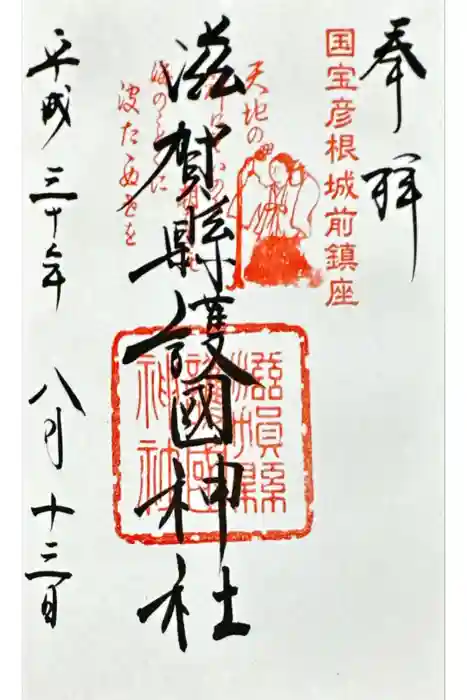 奉拝
国宝彦根城前鎮座
天地の
海のことくに
波たゝぬ世を
滋賀縣護國神社
滋賀縣
護國
神社
平成三十年 八月十三日